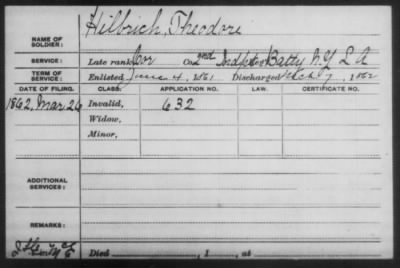 NAME OF SOLDIER: Hilbrich, Theodore
SERVICE: Late rank Cor Co. 2nd Indptdt Batty N.Y. L A
TERM OF SERVICE: Enlisted June 4, 1861 Discharged Mch 7, 1862
DATE OF FILING. CLASS. APPLICATION NO. LAW. CERTIFICATE NO.
1862, Mar 26 Invalid, 632
Widow,
Minor,
ADDITIONAL SERVICES:
REMARKS:
Died , 1 , at